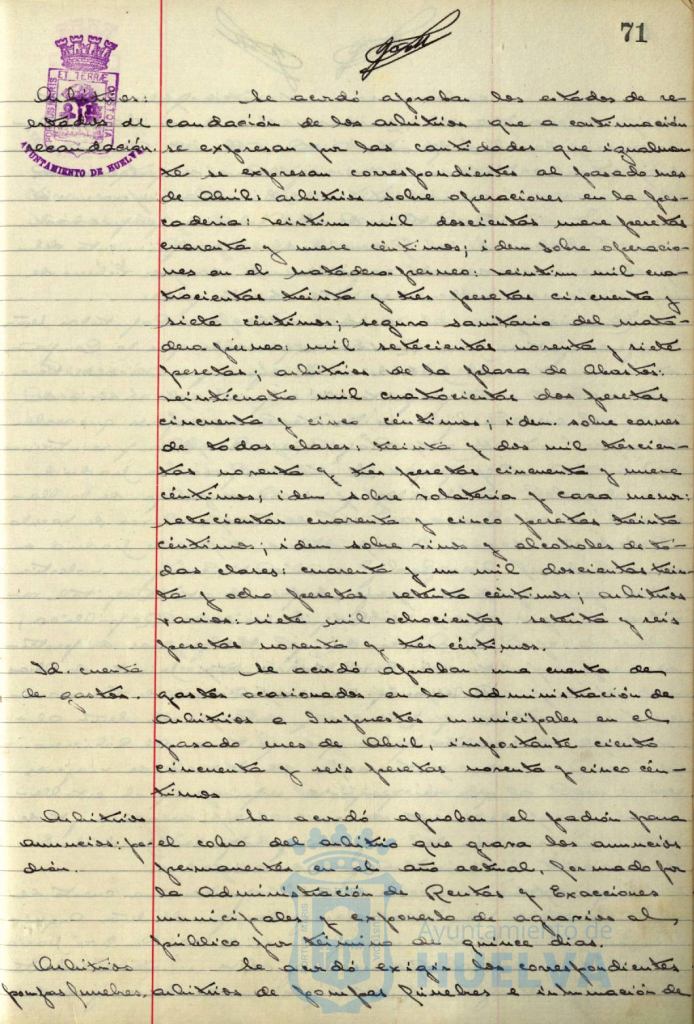 71
ET TERRÆ
AYUNTAMIENTO DE HUELVA
Arbitrios:
estados de
recaudación.
Se acordó aprobar los estados de re-
caudación de los arbitrios que a continuación
se expresan por las cantidades que igualmen
te se expresan correspondientes al pasado mes
de Abril: arbitrios sobre operaciones en la pes-
cadería: veintiun mil doscientas nueve pesetas
cuarenta y nueve céntimos; idem sobre operacio-
nes en el matadero puerco: veintiun mil cua
trocientas treinta y tres pesetas cincuenta y
siete céntimos; seguro sanitario del mata-
dero puerco: mil setecientas noventa y siete
pesetas; arbitrios de la plaza de Abastos:
veinticuatro mil cuatrocientas dos pesetas
cincuenta y cinco céntimos; idem. sobre carnes
de todas clases: treinta y dos mil trescien-
tas noventa y tres pesetas cincuenta y nueve
céntimos; idem sobre volateria y caza menor:
setecientas cuarenta y cinco pesetas treinta
céntimos; idem sobre vinos y alcoholes de to-
das clases: cuarenta y un mil doscientas trein-
ta y ocho pesetas setenta céntimos; arbitrios
varios: siete mil ochocientas setenta y seis
pesetas noventa y tres céntimos.
Id. cuenta
de gastos.
Se acordó aprobar una cuenta de
gastos ocasionados en la Administración de
Arbitrios e Impuestos municipales en el
pasado mes de Abril, importante ciento
cincuenta y seis pesetas noventa y cinco cén-
timos
Arbitrios
anuncios: pa-
drón.
Se acordó aprobar el padrón para
el cobro del arbitrio que grava los anuncios
permanentes en el año actual, formado por
la Administración de Rentas y Exacciones
municipales y exponerlo de agravios al
público por término de quince dias.
Arbitrios
pompas funebres.
Se acordó exigir los correspondientes
arbitrios de pompas fúnebres e inhumación de
Ayuntamiento de
HUELVA